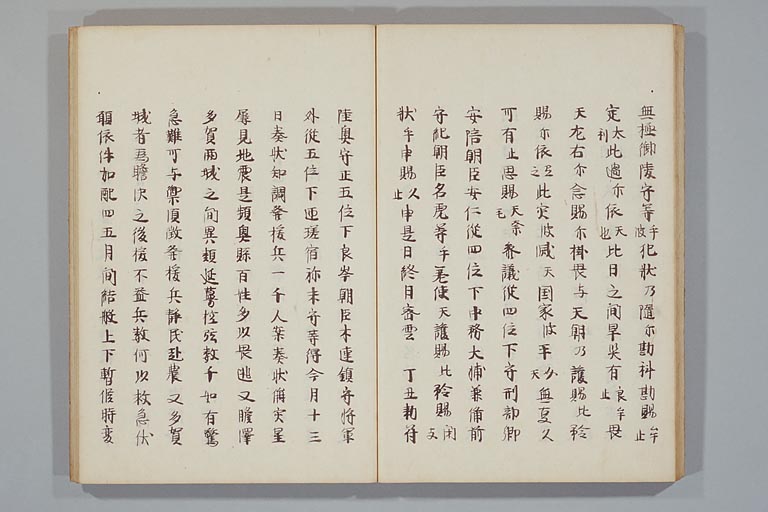 無極御陵守等乎波犯状乃隨尓勘科勘賜牟止
定太利此過尓依天也比日之間旱災有良牟止畏
天左右尓念賜尓掛畏与天朝乃護賜比矜
賜尓依弖之此災波滅天国家波平久天無夏久
可有止思賜天奈毛参議従四位下守刑部卿
安陪朝臣安仁従四位下中務大輔兼備前
守紀朝臣名虎等乎差使天護賜比矜賜閇支
状乎申賜久止申是日終日密雲　丁丑勅符
陸奥守正五位下良岑朝臣木連鎮守将軍
外従五位下匝瑳宿祢末守等得今月十三
日奏状知調発援兵一千人案奏状偁災星
屡見地震是頻奥縣百姓多以畏逃又膽澤
多賀両城之間異類延蔓控弦数千如有驚
急難可与禦須徴発援兵静民赴農又多賀
城者為膽沢之後援不益兵数何以救急伏
願依件加配四五月間結般上下暫候時変